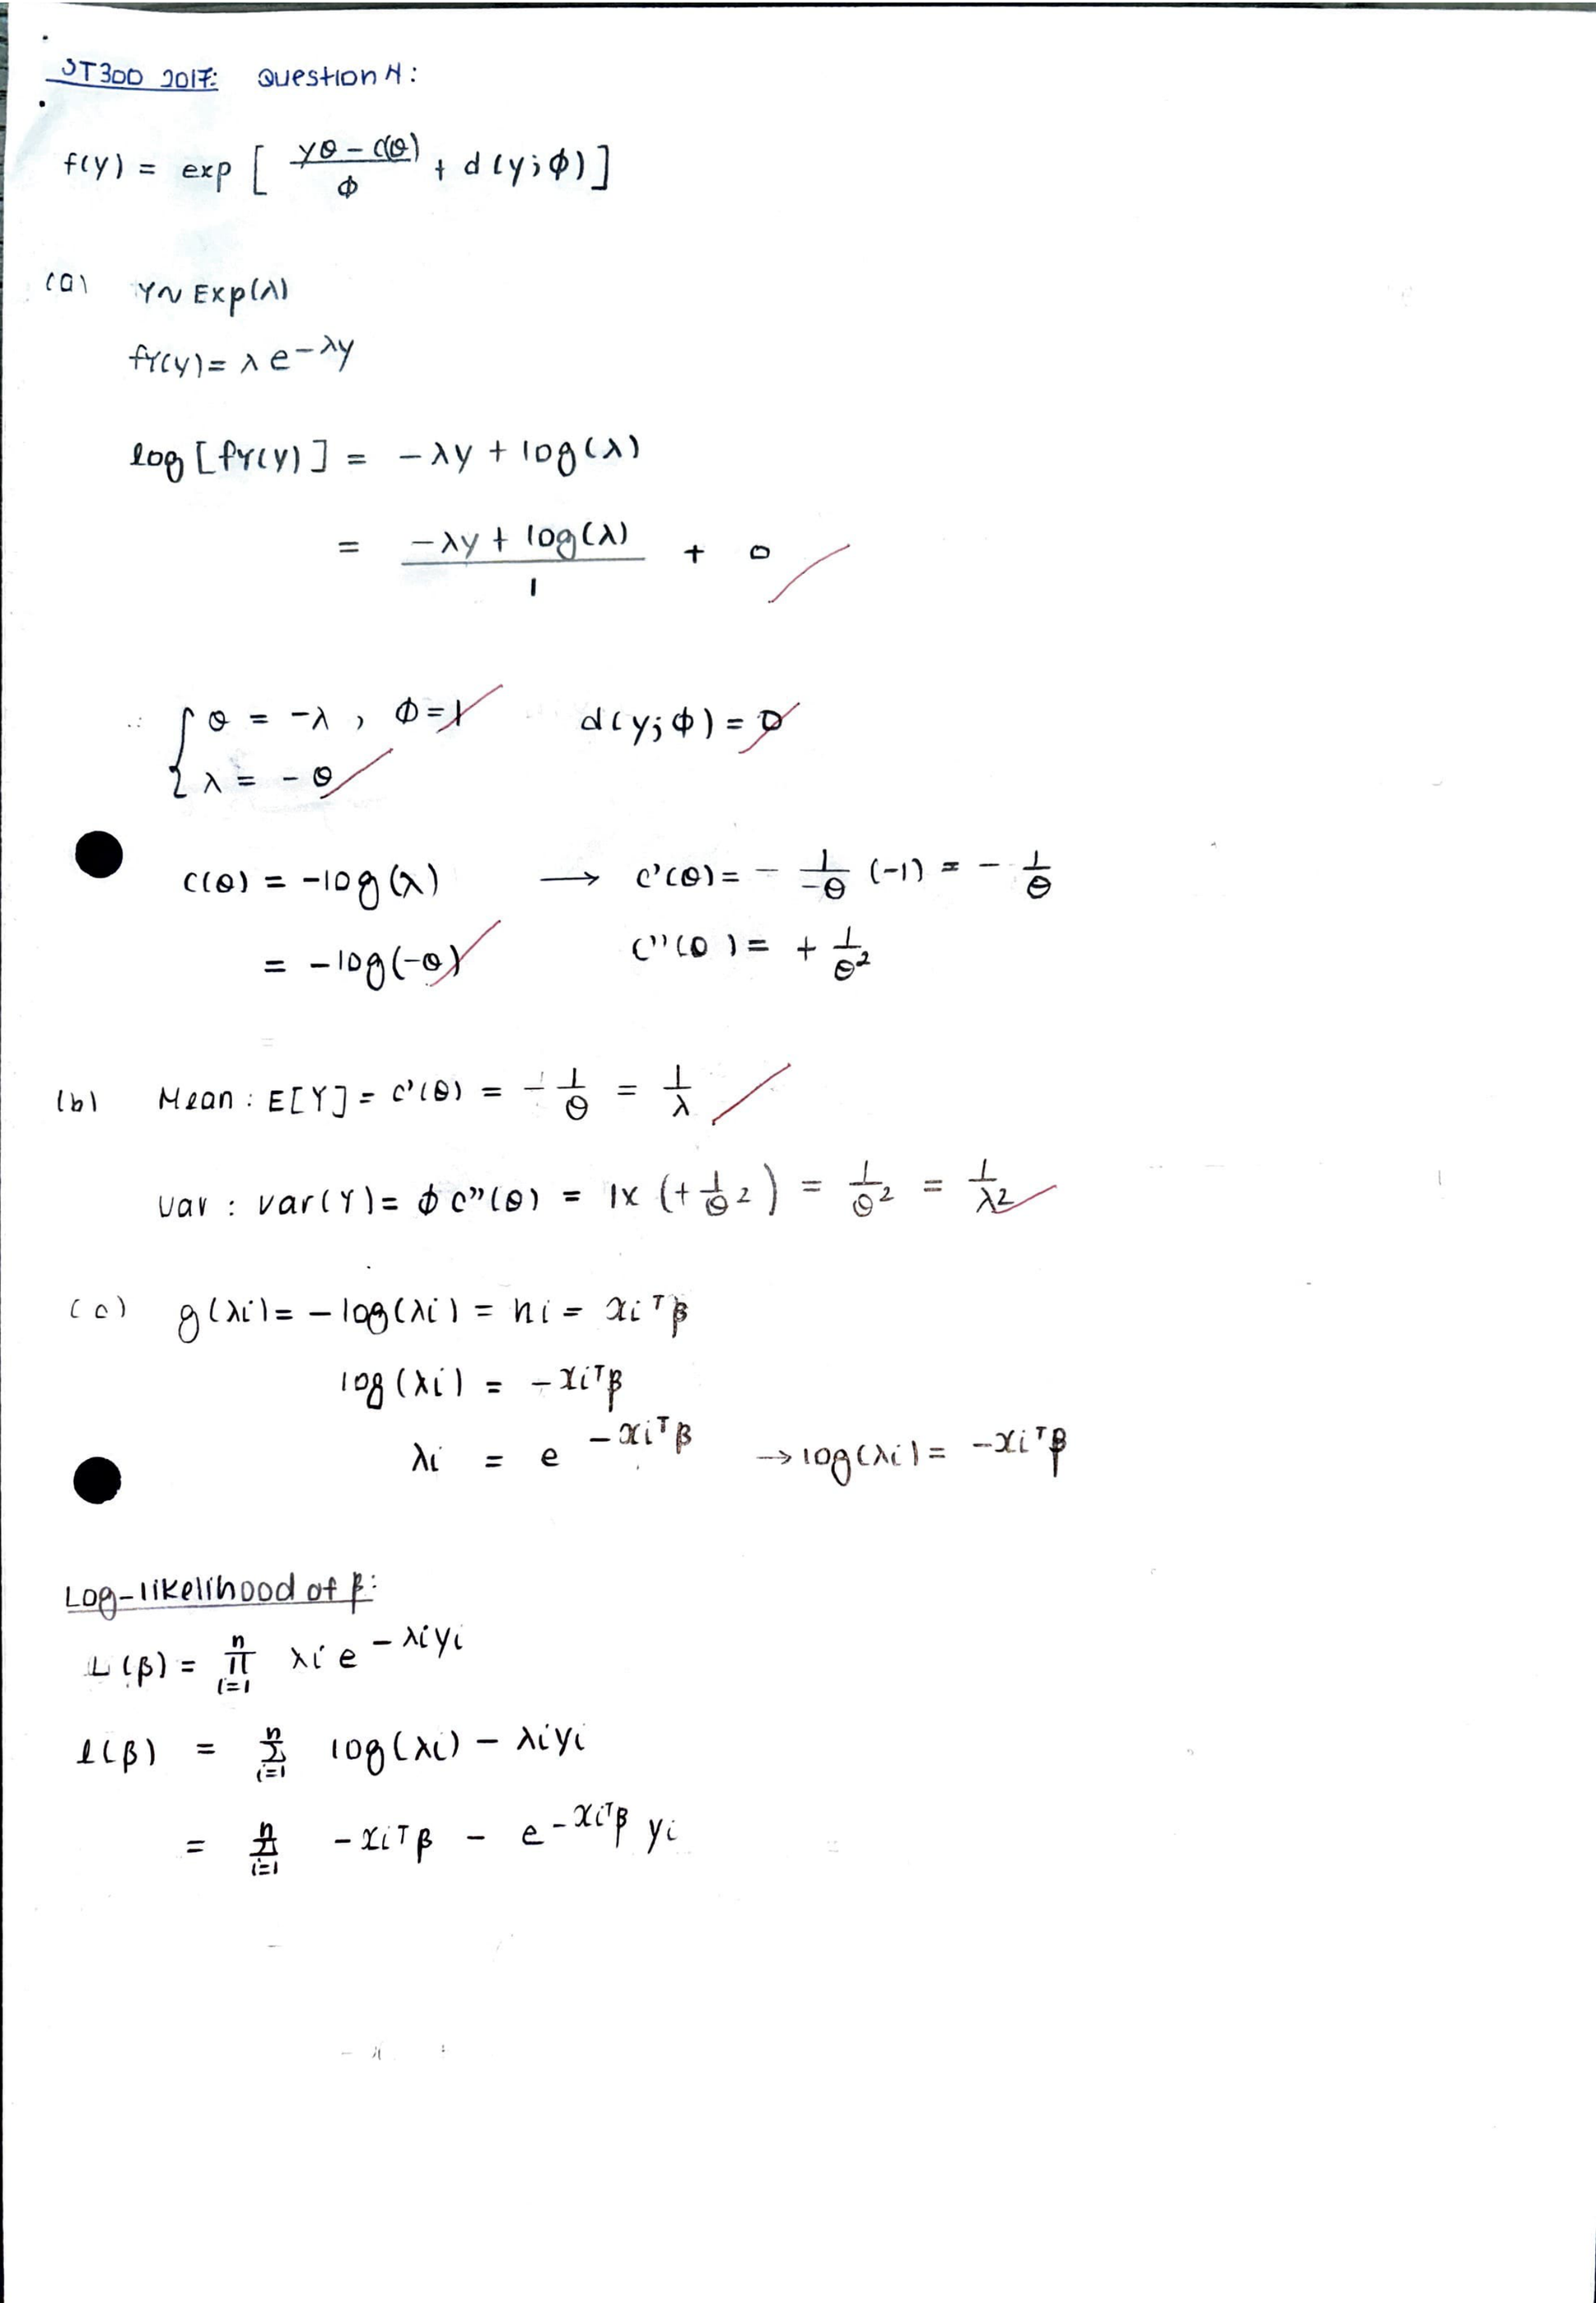 ST300 2017: Question 4:
f(y) = exp [ (yθ - c(θ))/φ + d(y;φ) ]
(a) Y~ Exp(λ)
fY(y) = λ e^{-λy}
log [fY(y)] = -λy + log(λ)
= (-λy + log(λ))/1 + 0
∴ { θ = -λ , φ = 1 d(y;φ) = 0
λ = -θ
c(θ) = -log(λ) → c'(θ) = - 1/-θ (-1) = - 1/θ
= -log(-θ) c''(θ) = + 1/θ²
(b) Mean : E[Y] = c'(θ) = - 1/θ = 1/λ
var : var(Y) = φ c''(θ) = 1x (+ 1/θ²) = 1/θ² = 1/λ²
(c) g(λi) = -log(λi) = ηi = xi^T β
log(λi) = -xi^T β
λi = e^{-xi^T β} → log(λi) = -xi^T β
Log-likelihood of β:
L(β) = ∏_{i=1}^{n} λi e^{-λiyi}
l(β) = Σ_{i=1}^{n} log(λi) - λiyi
= Σ_{i=1}^{n} -xi^T β - e^{-xi^T β} yi